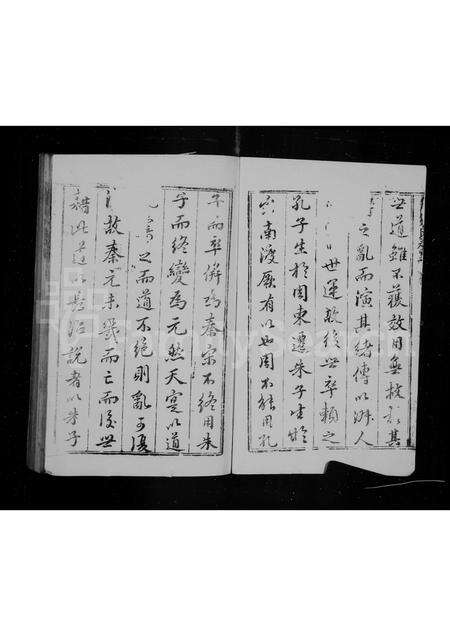 世道雖不獲效用無救於其
之亂而演其緒傳以淑人
世運故後世卒賴之
孔子生於周東遷朱子生於
宋南渡厥有以也周不能用孔
子而卒併為秦宋不終用朱
子而終變為元然天寔以道
之而道不絕則亂可復
故秦元未幾而亡而後世
説者以朱子